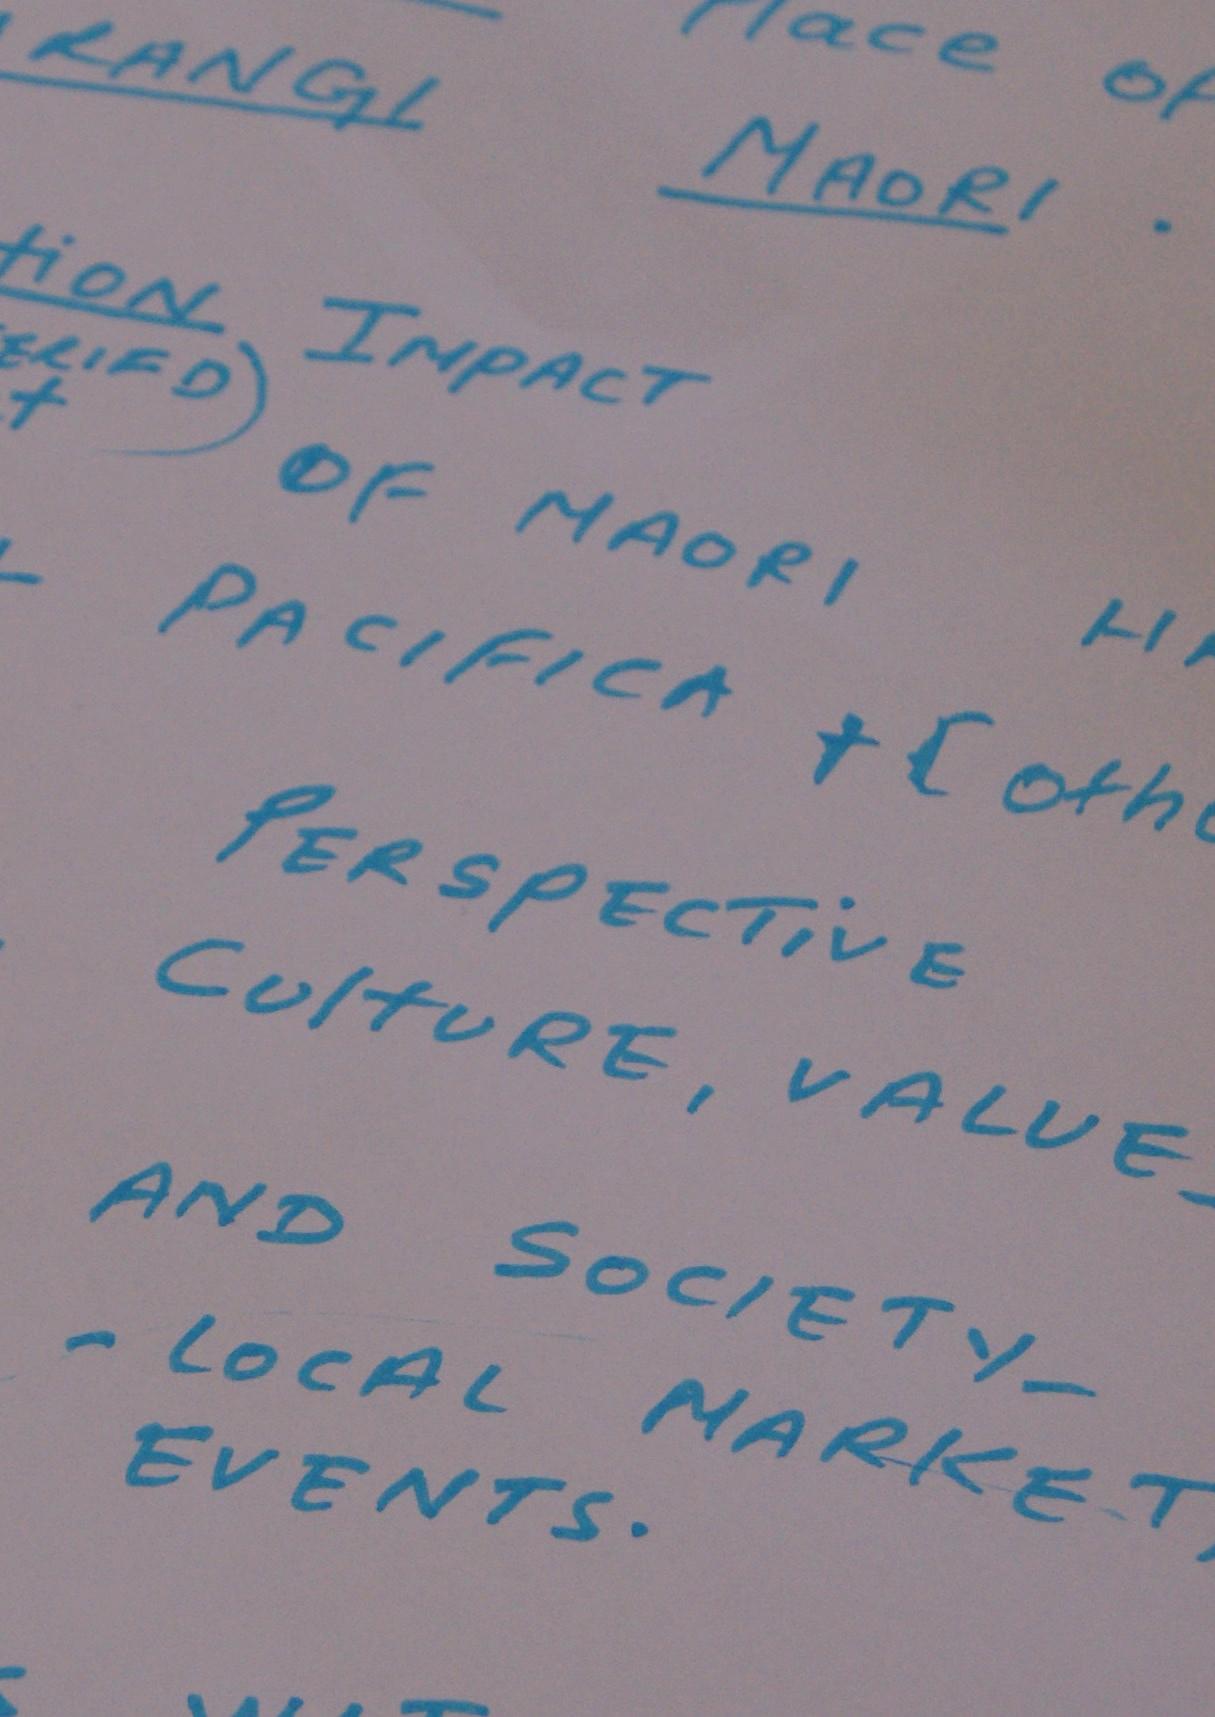 RANGI Place of
MAORI.
tion IMPACT
ERIED)
OF MAORI
PACIFICA + [othe
PERSPECTiVE
CultuRE, VALUE_
AND SOCIETY_
- LOCAL MARKET,
EVENTS.